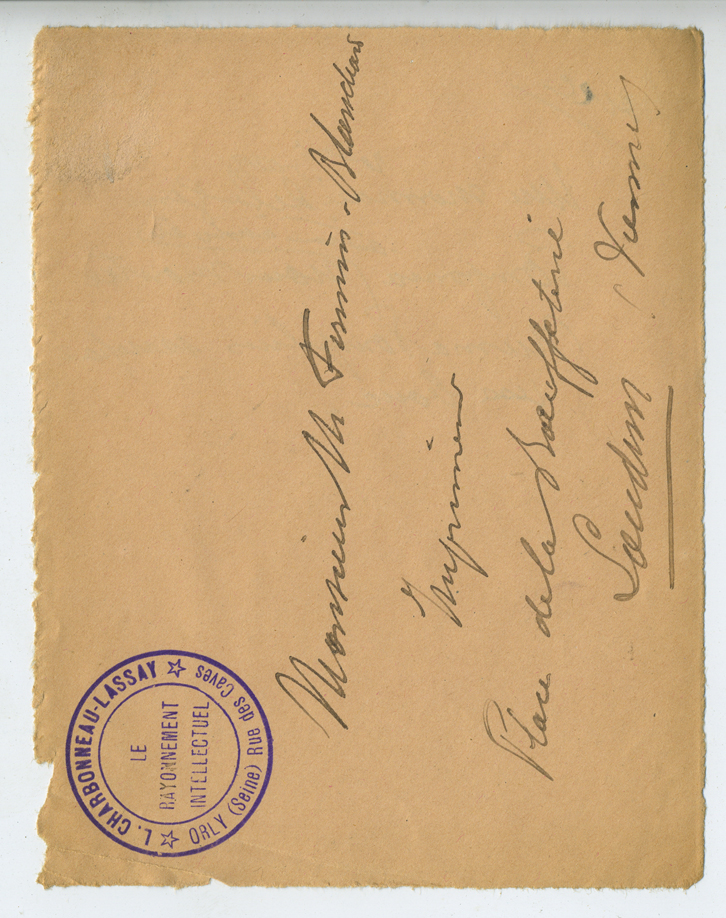 L. CHARBONNEAU-LASSAY
LE
RAYONNEMENT
INTELLECTUEL
ORLY (Seine) Rue des Caves
Monsieur M Firmin-Blanchard
Imprimeur
Place de la Bœuffeterie
Loudun (Vienne)